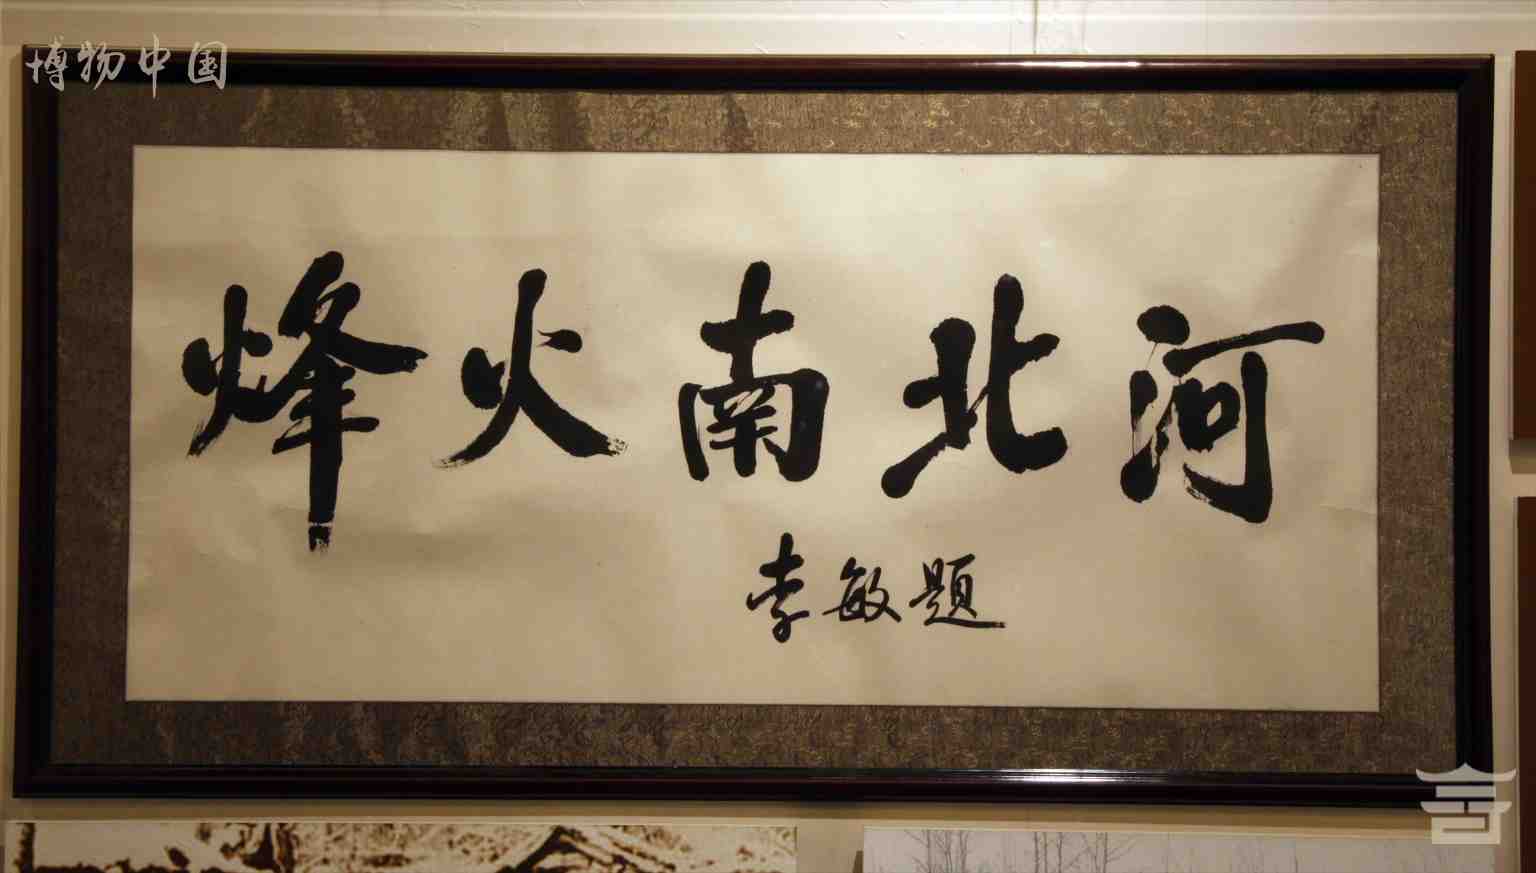 博物中国
烽火南北河
李敏题